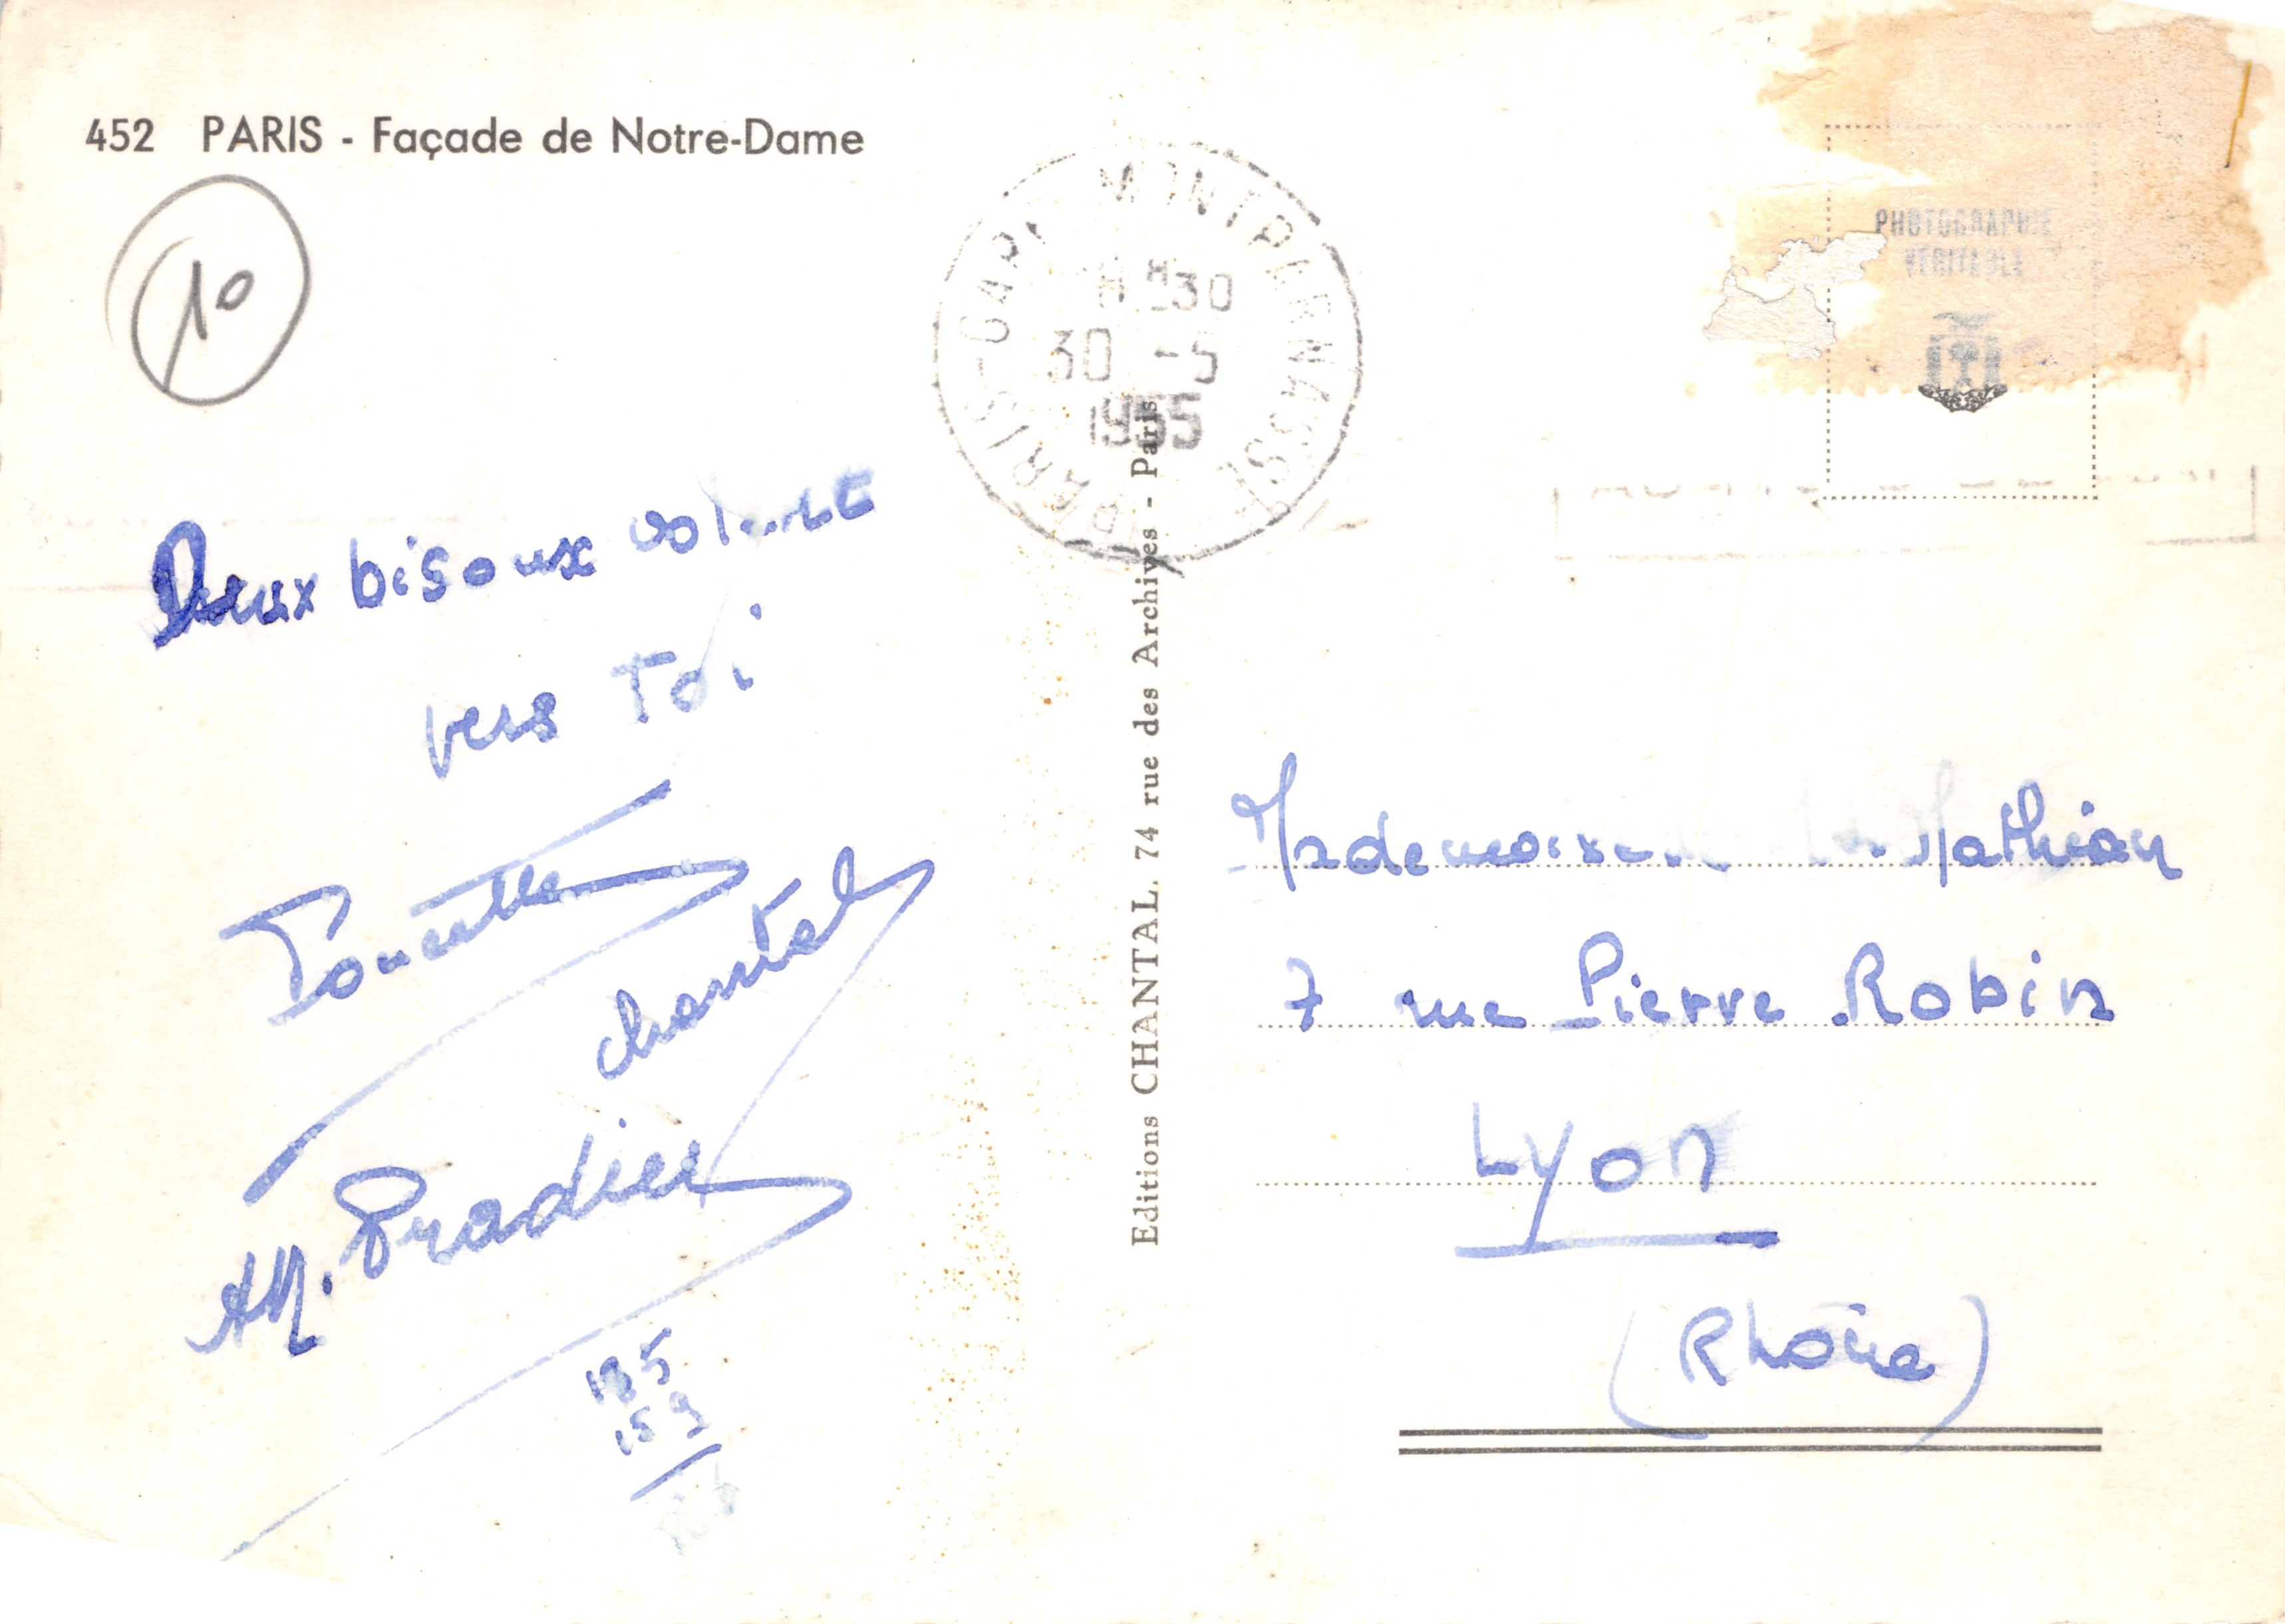 452 PARIS - Façade de Notre-Dame
10
PARIS-GARE MONTPARNASSE
30
30 -5
1955
PHOTOGRAPHIE
VERITABLE
Deux bisoux
vers Toi
chantal
Pradier
Editions CHANTAL. 74 rue des Archives - Paris
Mademoiselle Mathian
7 rue Pierre Robin
Lyon
(Rhône)
159